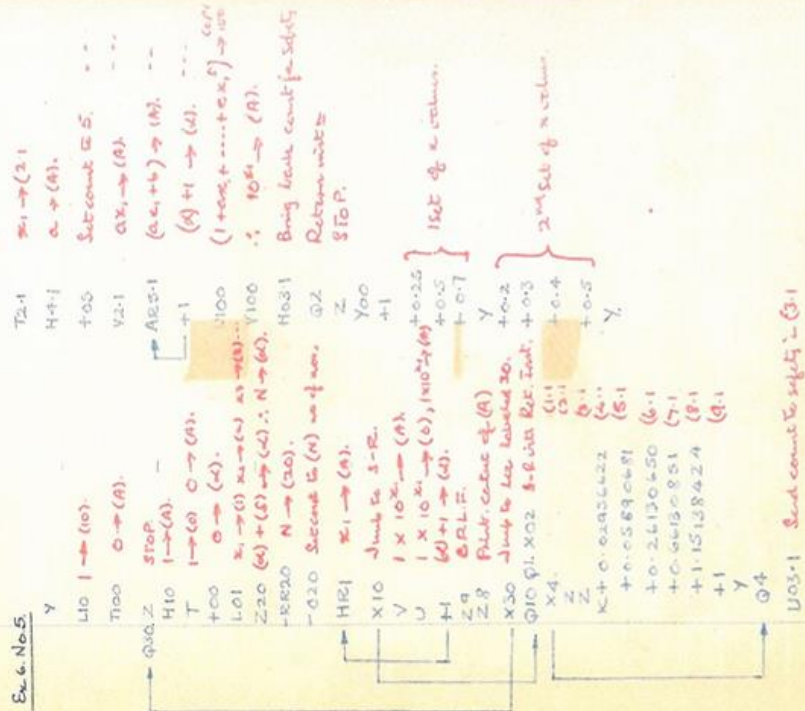 Ex 6. No 5.
Y
L10 1 → (10).
T100 0 → (A).
Q30. Z STOP.
H10 1 → (A).
T 1 → (0) 0 → (A).
+00 0 → (α).
L01 x₁ → (1) x₂ → (2) x₃ → (3) ...
Z20 (α) + (S) → (α) ∴ N → (α).
-RR20 N → (20).
-020 Set count to (N) no of nos.
HR1 x₁ → (A).
X10 Jump to S-R.
V 1 × 10^x₁ → (A).
U 1 × 10^x₁ → (0), 1×10^x₁ → (A)
+1 (α) + 1 → (α).
Z9 C.R.L.F.
Z8 Print. of (A)
X30 Jump to labelled 30.
Q10 Q1. X02 S-R with Ret. Inst.
X4.
Z
Z
K+0.02936622 (4.1
+0.05890681 (5.1
+0.26130650 (6.1
+0.66130851 (7.1
+1.15138424 (8.1
+1 (9.1
Y
Q4
U03.1 Send count to safety in (3.1
T2.1 x₁ → (2.1
H4.1 a → (A).
+03 Set count to 5.
V2.1 ax₁ → (A).
AR5.1 (ax₁ + b) → (A).
+1 (α) + 1 → (α)
V100 (1 + ax₁ + ..... + ex₁⁵) → 100
V100 ∴ 10^x₁ → (A).
H03.1 Bring back count from safety
Q2 Return inst
Z STOP.
Y00
+1
+0.25
+0.5 1 set of x values.
+0.7
Y
+0.2
+0.3 2nd set of x values.
+0.4
+0.5
Y